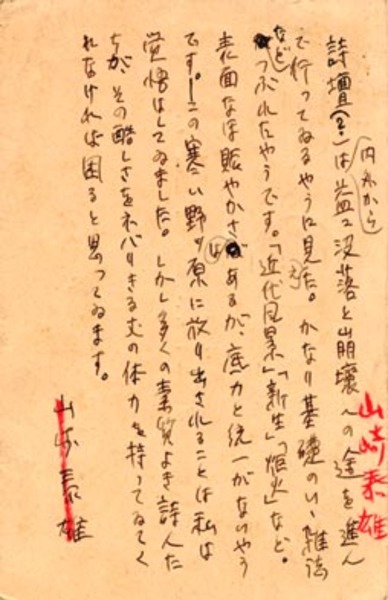 詩壇(?)は益々没落と崩壊への途を進ん
内和から
で行ってゐるやうに見えた。かなり基礎のいゝ雑誌
など
つぶれたやうです。「近代風景」「新生」「炬火」など。
表面なほ賑やかさはあるが、底力と統一がないやう
です。この寒い野ッ原に放り出されることは私は
覚悟はしてゐました。しかし多くの素質よき詩人た
ちが、その酷しさをネバりきる丈の体力を持ってゐてく
れなければ困ると思ってゐます。
山崎泰雄
山崎泰雄